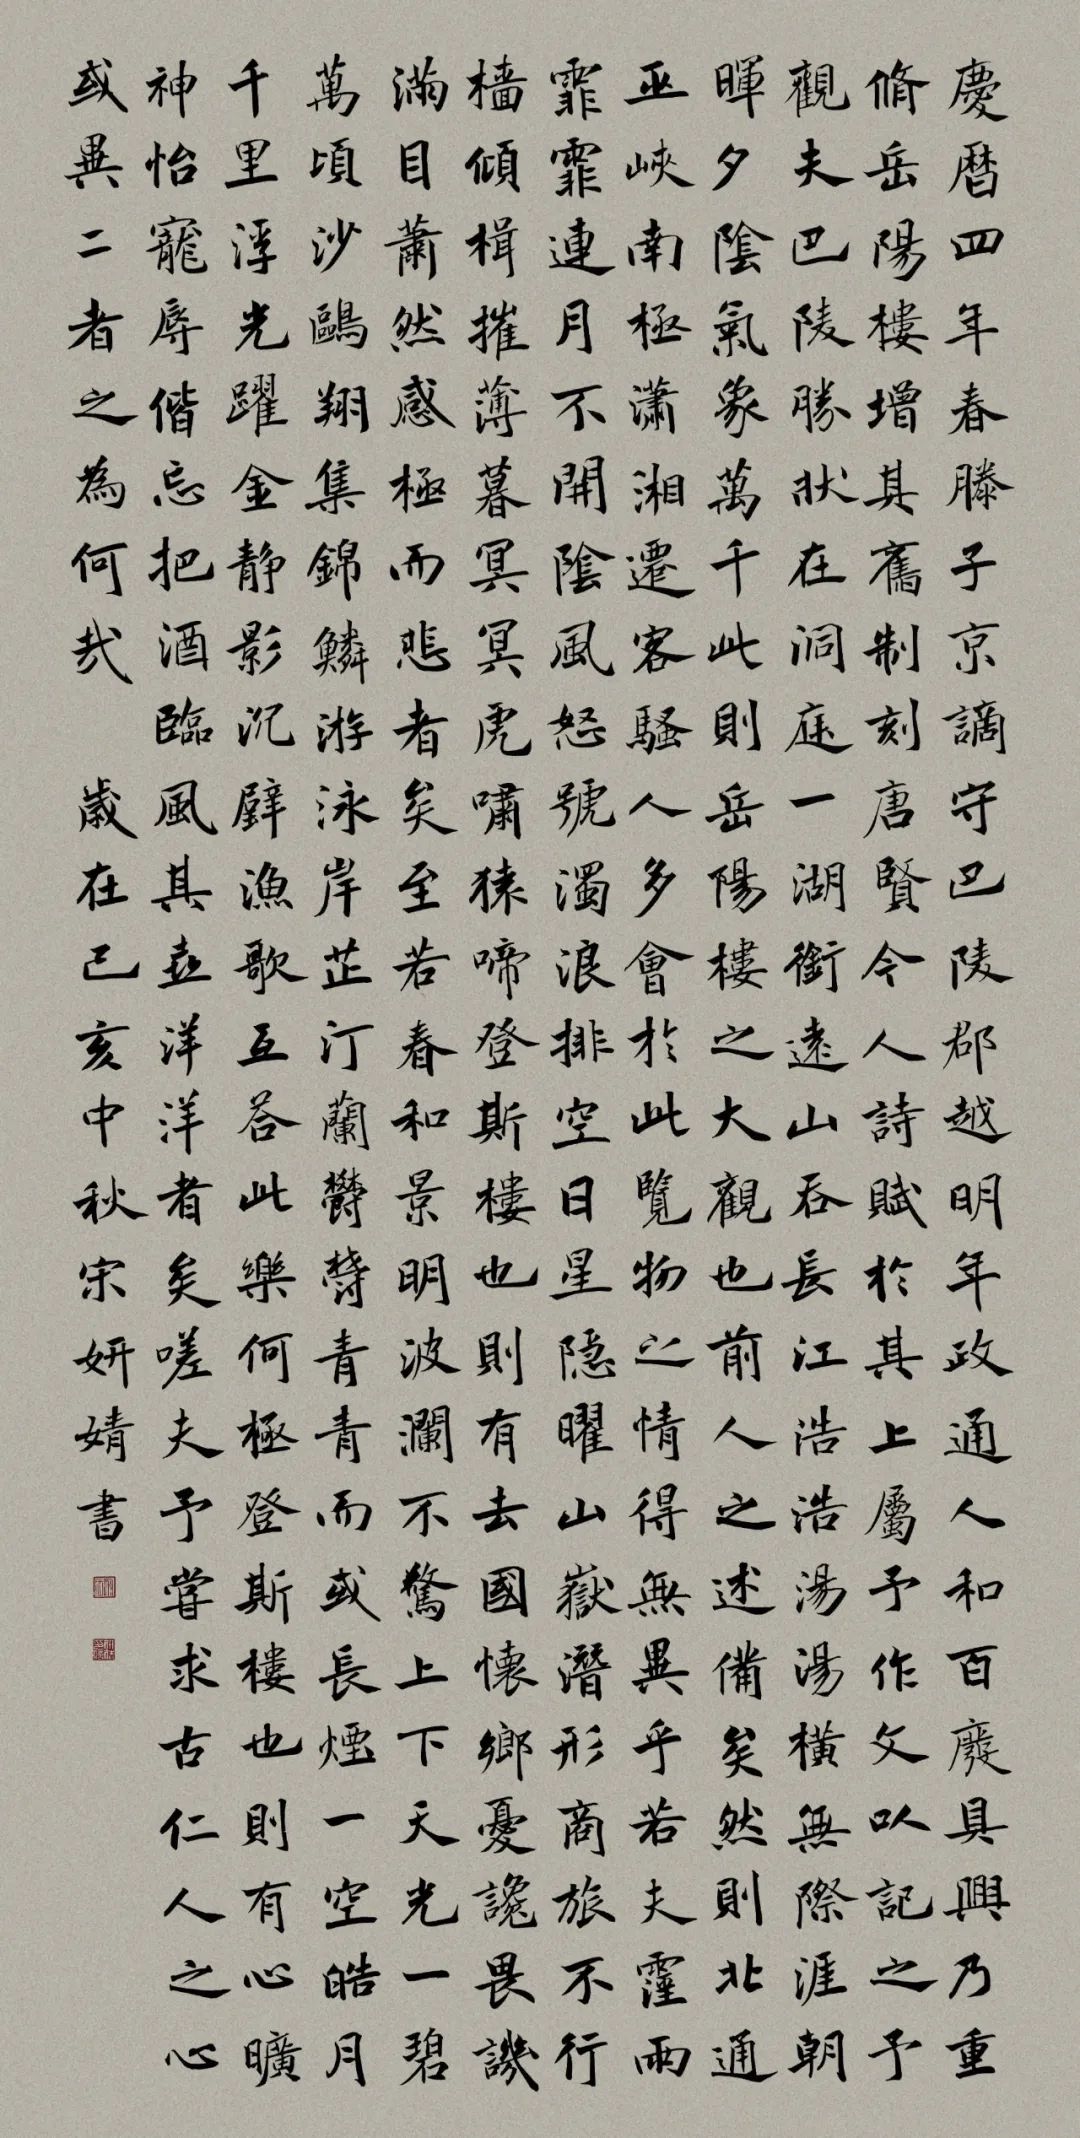 慶曆四年春滕子京謫守巴陵郡越明年政通人和百廢具興乃重
脩岳陽樓增其舊制刻唐賢令人詩賦於其上屬予作文以記之予
觀夫巴陵勝狀在洞庭一湖銜遠山吞長江浩浩湯湯橫無際涯朝
暉夕陰氣象萬千此則岳陽樓之大觀也前人之述備矣然則北通
巫峽南極瀟湘遷客騷人多會於此覽物之情得無異乎若夫霪雨
霏霏連月不開陰風怒號濁浪排空日星隱曜山嶽潛形商旅不行
檣傾楫摧薄暮冥冥虎嘯猿啼登斯樓也則有去國懷鄉憂讒畏譏
滿目蕭然感極而悲者矣至若春和景明波瀾不驚上下天光一碧
萬頃沙鷗翔集錦鱗游泳岸芷汀蘭欝欝青青而或長煙一空皓月
千里浮光躍金静影沉璧漁歌互荅此樂何極登斯樓也則有心曠
神怡寵辱偕忘把酒臨風其喜洋洋者矣嗟夫予嘗求古仁人之心
或異二者之為何哉 歲在己亥中秋宋妍婧書